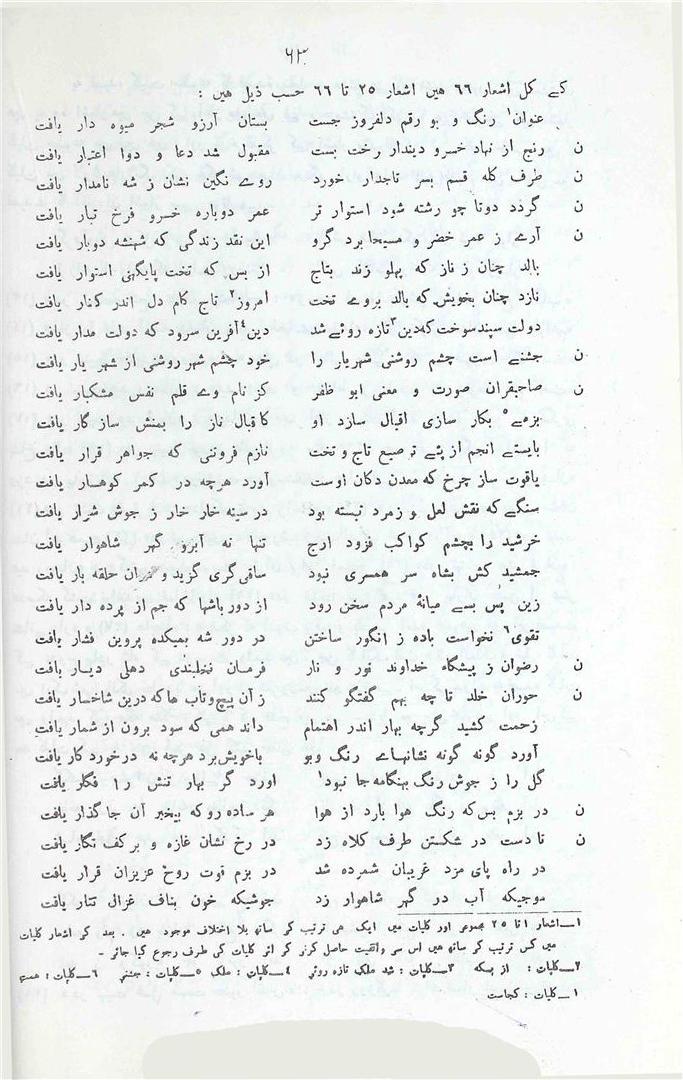 ۶۳
کے کل اشعار ۶۶ ہیں اشعار ۲۵ تا ۶۶ حسب ذیل ہیں :
عنوان۱ رنگ و بو رقم دلفروز جست بستان آرزو شجر میوہ دار یافت
ن رنج از نہاد خسرو دیندار رخت بست مقبول شد دعا و دوا اعتبار یافت
ن طرف کلہ قسم بسر تاجدار خورد روے نگین نشان ز شہ نامدار یافت
ن گردد دوتا چو رشتہ شود استوار تر عمر دوبارہ خسرو فرخ تبار یافت
ن آرے ز عمر خضر و مسیحا برد گرو این نقد زندگی کہ شہنشہ دوبار یافت
بالد چنان ز ناز کہ پہلو زند بتاج از بس کہ تخت پایگہی استوار یافت
نازد چنان بخویش کہ بالد بروے تخت امروز۲ تاج کام دل اندر کنار یافت
دولت سپند سوخت کہ دین۳ تازہ روئے شد دین۴ آفرین سرود کہ دولت مدار یافت
ن جشنے است چشم روشنی شہریار را خود چشم شہر روشنی از شہر یار یافت
ن صاحبقران صورت و معنی ابو ظفر کز نام وے قلم نفس مشکبار یافت
بزمے۵ بکار سازی اقبال سازد او کاقبال ناز را بمنش ساز گار یافت
بایستے انجم از پئے ترصیع تاج و تخت نازم فروتنی کہ جواہر قرار یافت
یاقوت ساز چرخ کہ معدن دکان اوست آورد ہرچہ در کمر کوہسار یافت
سنگے کہ نقش لعل و زمرد نبستہ بود در سینہ خار خار ز جوش شرار یافت
خرشید را بچشم کواکب فزود ارج تنہا نہ آبرو گہر شاہوار یافت
جمشید کش بشاہ سر ہمسری نبود ساقی گری گزید و دران حلقہ بار یافت
زین پس بسے میانۂ مردم سخن رود از دور باشہا کہ جم از پردہ دار یافت
تقوی۶ نخواست بادہ ز انگور ساختن در دور شہ بمیکدہ پروین فشار یافت
ن رضوان ز پیشگاہ خداوند نور و نار فرمان نخلبندی دہلی دیار یافت
ن حوران خلد تا چہ بہم گفتگو کنند ز آن پیچ وتاب ہا کہ درین شاخسار یافت
زحمت کشید گرچہ بہار اندر اہتمام داند ہمی کہ سود برون از شمار یافت
آورد گونہ گونہ نشانہاے رنگ وبو باخویش برد ہرچہ نہ درخورد کار یافت
گل را ز جوش رنگ بہنگامہ جا نبود۱ آورد گر بہار تنش را فگار یافت
ن در بزم بس کہ رنگ ہوا بارد از ہوا ہر سادہ رو کہ بیخبر آن جا گذار یافت
ن تا دست در شکستن طرف کلاہ زد در رخ نشان غازہ و بر کف نگار یافت
در راہ پای مزد غریبان شمردہ شد در بزم قوت روح عزیزان قرار یافت
موجیکہ آب در گہر شاہوار زد جوشیکہ خون بناف غزال تتار یافت
۱ــاشعار ۱ تا ۲۵ مجموعی اور کلیات میں ایک ہی ترتیب کے ساتھ بلا اختلاف موجود ہیں . بعد کے اشعار کلیات
میں کس ترتیب کے ساتھ ہیں اس سے واقفیت حاصل کرنے کے لئے کلیات کی طرف رجوع کیا جائے -
۲ــکلیات : از بسکہ ۳ــکلیات : شد ملک تازہ روئے ۴ــکلیات : ملک ۵ــکلیات : جشنے ۶ــکلیات :
۱ــکلیات : کجاست